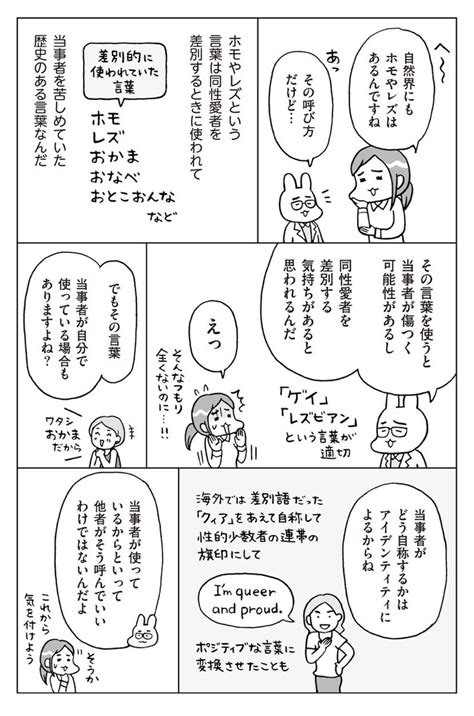 自然界にも
ホモやレズは
あるんですね
あっ
その呼び方
だけど…
ホモやレズという
言葉は同性愛者を
差別するときに使われて
差別的に
使われていた
言葉
ホモ
レズ
おかま
おなべ
おとこおんな
など
当事者を苦しめていた
歴史のある言葉なんだ
その言葉を使うと
当事者が傷つく
可能性があるし
同性愛者を
差別する
気持ちがあると
思われるんだ
「ゲイ」
「レズビアン」
という言葉が
適切
えっ
そんなつもり
全くないのに…!!
でもその言葉
当事者が自分で
使っている場合も
ありますよね?
ワタシ
おかま
だから
当事者が
どう自称するかは
アイデンティティに
よるからね
海外では差別語だった
「クィア」をあえて自称して
性的少数者の連帯の
旗印にして
I'm queer
and proud.
ポジティブな言葉に
変換させたことも
当事者が使って
いるからといって
他者がそう呼んでいい
わけではないんだよ
そうか
これから
気を付けよう